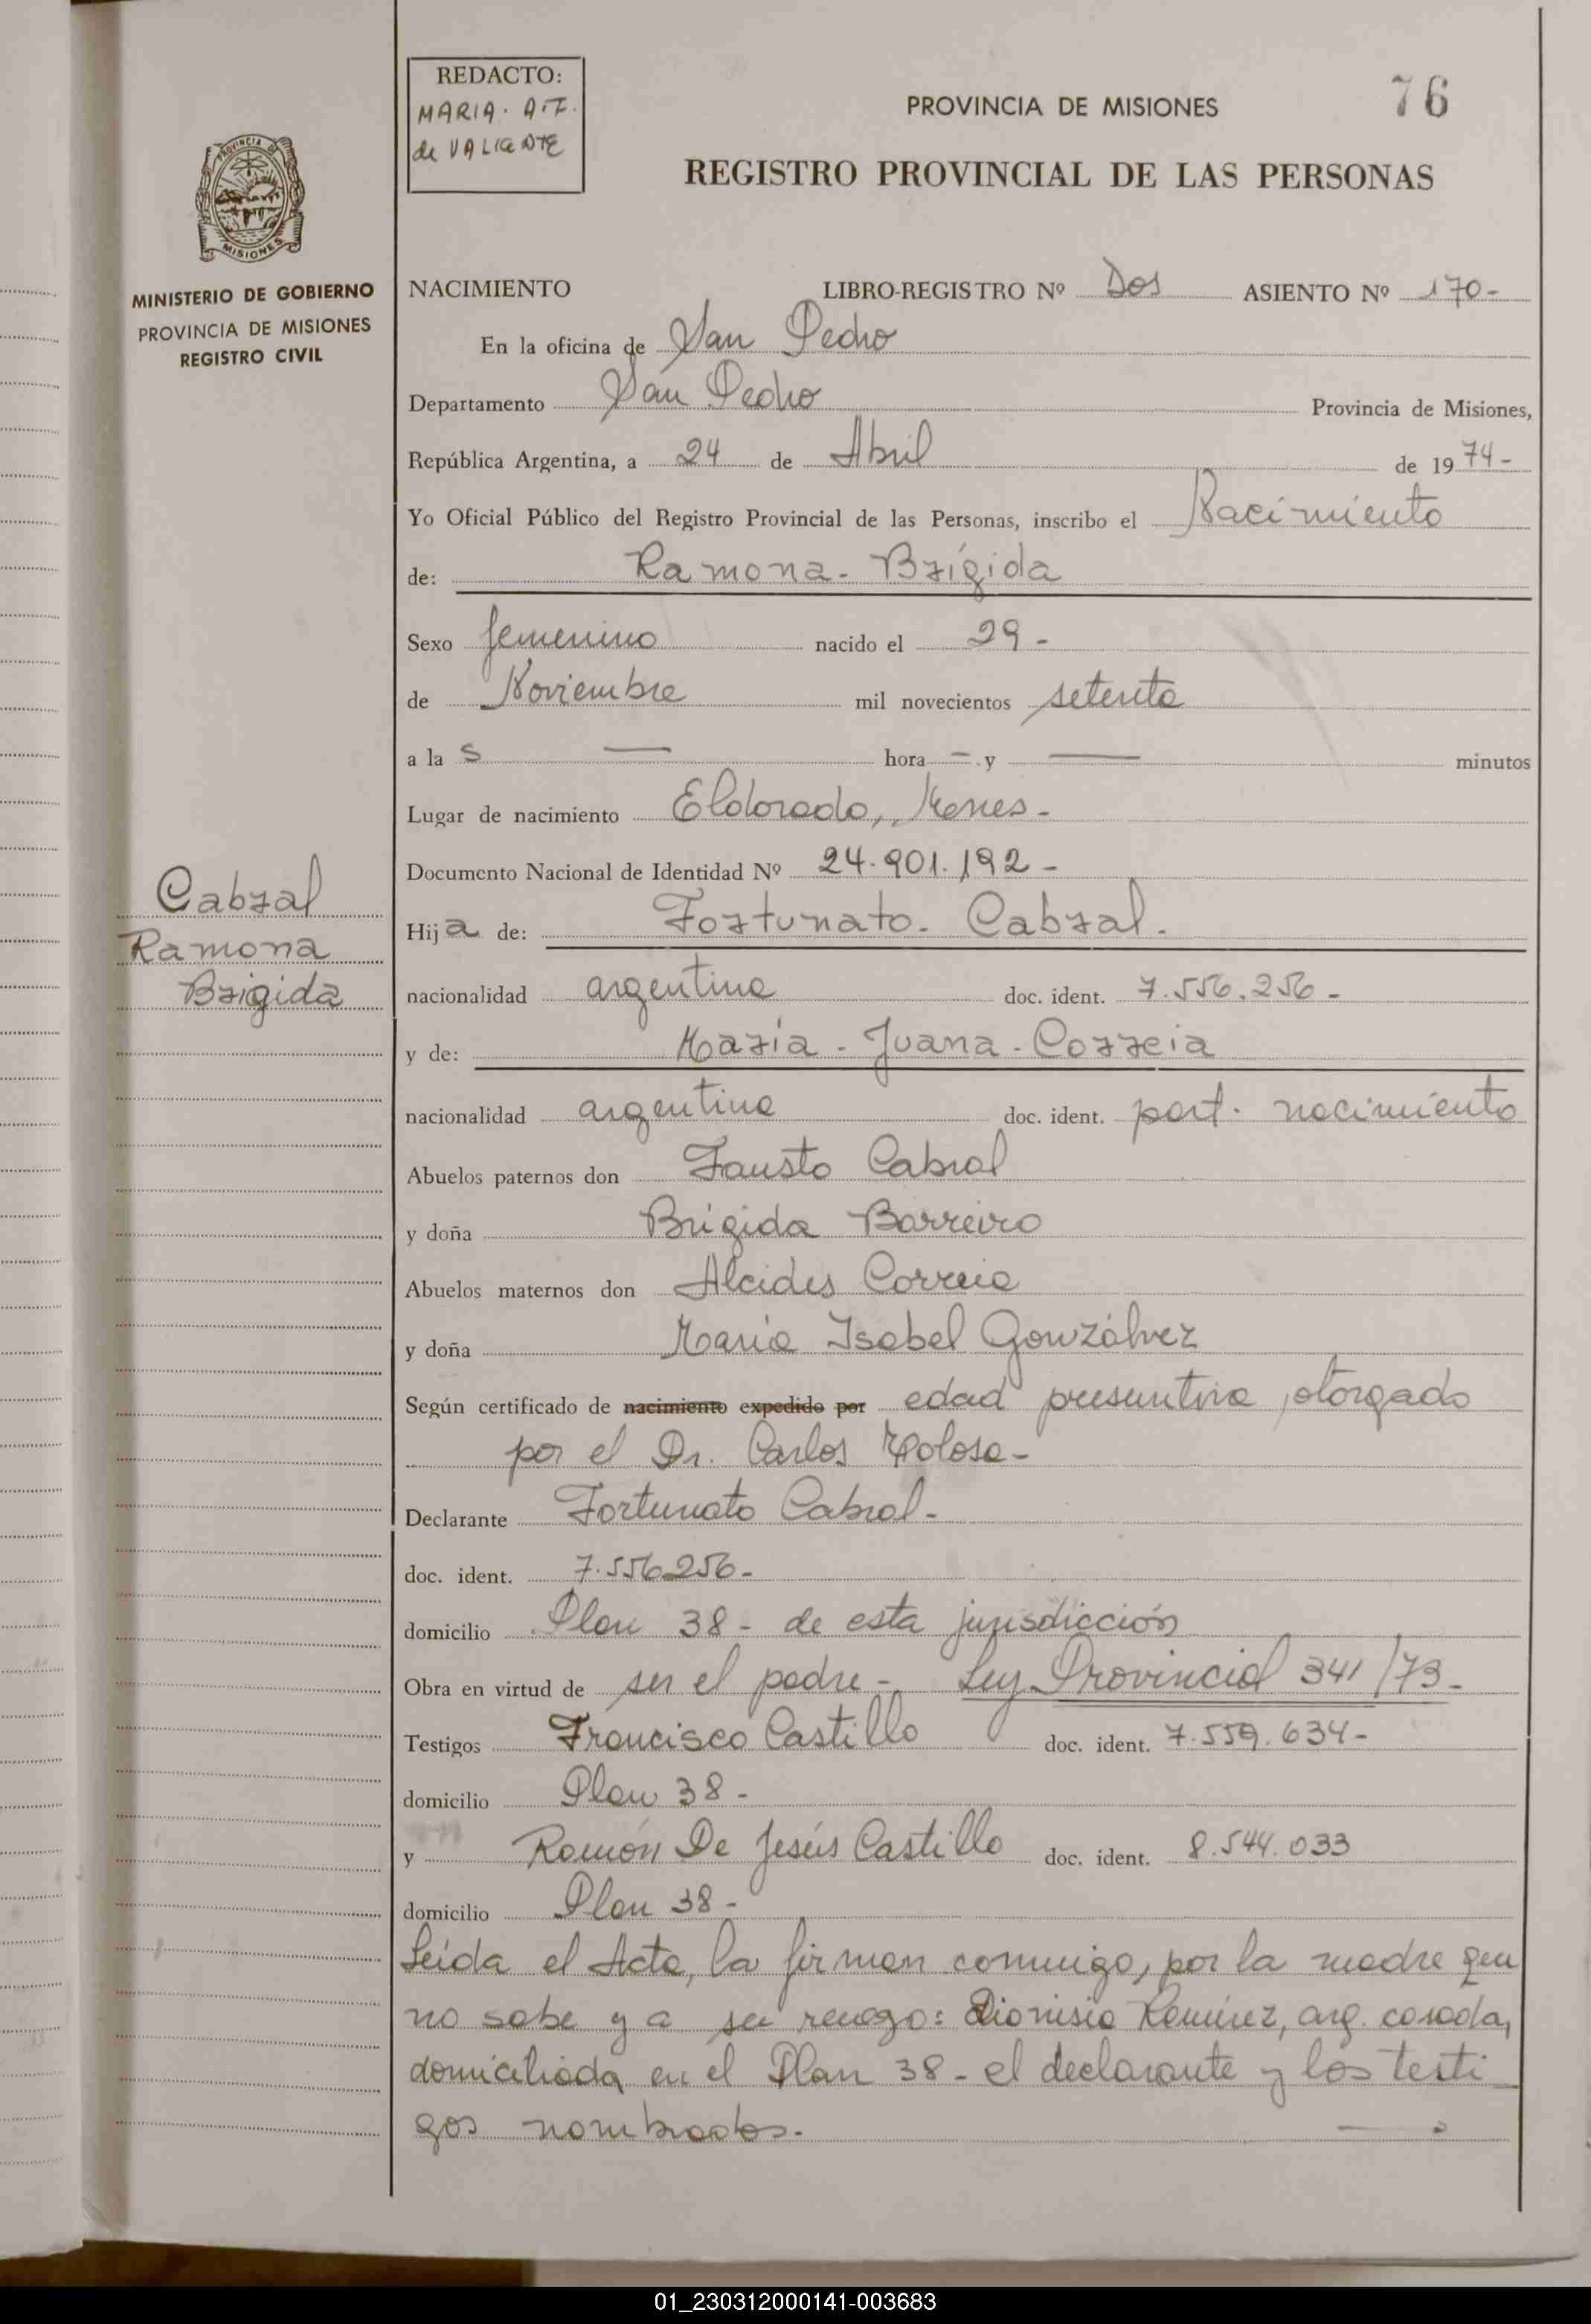 REDACTO:
MARIA. A.F.
de VALIENTE
PROVINCIA DE MISIONES
76
REGISTRO PROVINCIAL DE LAS PERSONAS
PROVINCIA DE
MISIONES
MINISTERIO DE GOBIERNO
PROVINCIA DE MISIONES
REGISTRO CIVIL
NACIMIENTO LIBRO-REGISTRO Nº Dos ASIENTO Nº 170-
En la oficina de San Pedro
Departamento San Pedro Provincia de Misiones,
República Argentina, a 24 de Abril de 1974-
Yo Oficial Público del Registro Provincial de las Personas, inscribo el Nacimiento
de: Ramona - Brígida
Sexo femenino nacido el 29 -
de Noviembre mil novecientos setenta
a la s — hora — y — minutos
Lugar de nacimiento Eldorado, Mnes -
Documento Nacional de Identidad Nº 24.901.192 -
Cabral
Ramona
Brigida
Hija de: Fortunato - Cabral.
nacionalidad argentina doc. ident. 7.556.256 -
y de: María - Juana - Correia
nacionalidad argentina doc. ident. part. nacimiento
Abuelos paternos don Fausto Cabral
y doña Brígida Barreiro
Abuelos maternos don Alcides Correia
y doña María Isabel Gonzálvez
Según certificado de nacimiento expedido por edad presuntiva, otorgado
por el Dr. Carlos -
Declarante Fortunato Cabral -
doc. ident. 7.556256 -
domicilio Plan 38 - de esta jurisdicción
Obra en virtud de ser el padre - Ley Provincial 341/73 -
Testigos Francisco Castillo doc. ident. 7.559.634 -
domicilio Plan 38 -
y Ramón De Jesús Castillo doc. ident. 8.544.033
domicilio Plan 38 -
Leída el Acta, la firman conmigo, por la madre que
no sabe y a su ruego: Dionisia Ramírez, arg. casada,
domiciliada en el Plan 38 - el declarante y los testi
gos nombrados. -
01_230312000141-003683